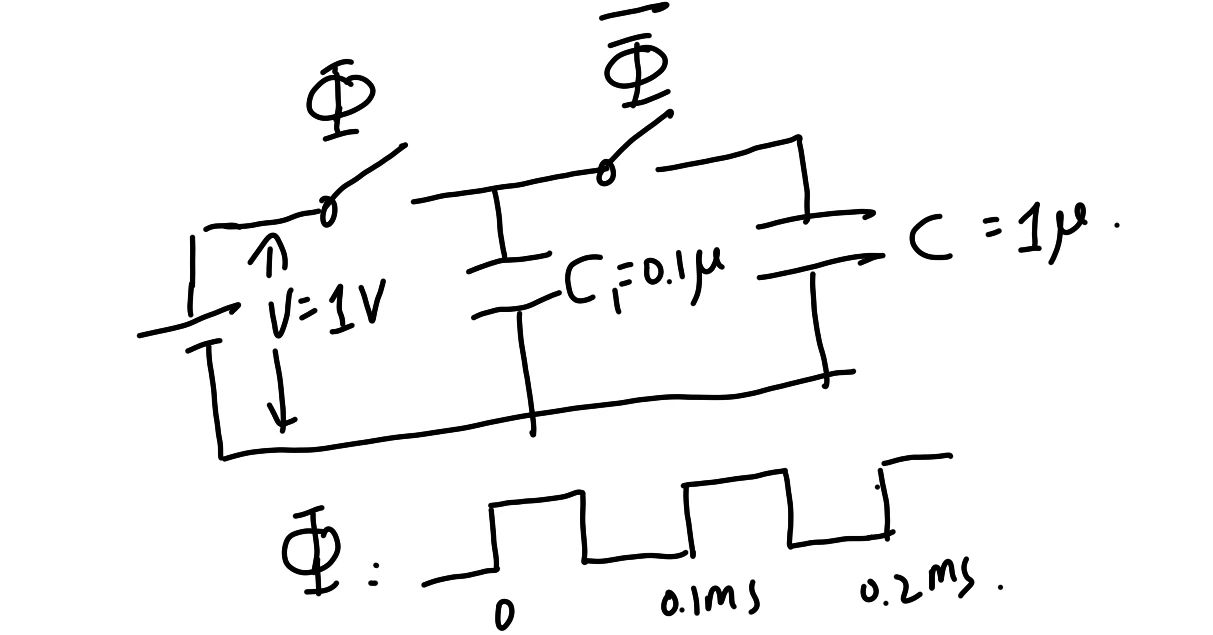 Φ
Φ̅
V = 1V
C₁ = 0.1μ
C = 1μ.
Φ :
0
0.1ms
0.2ms.